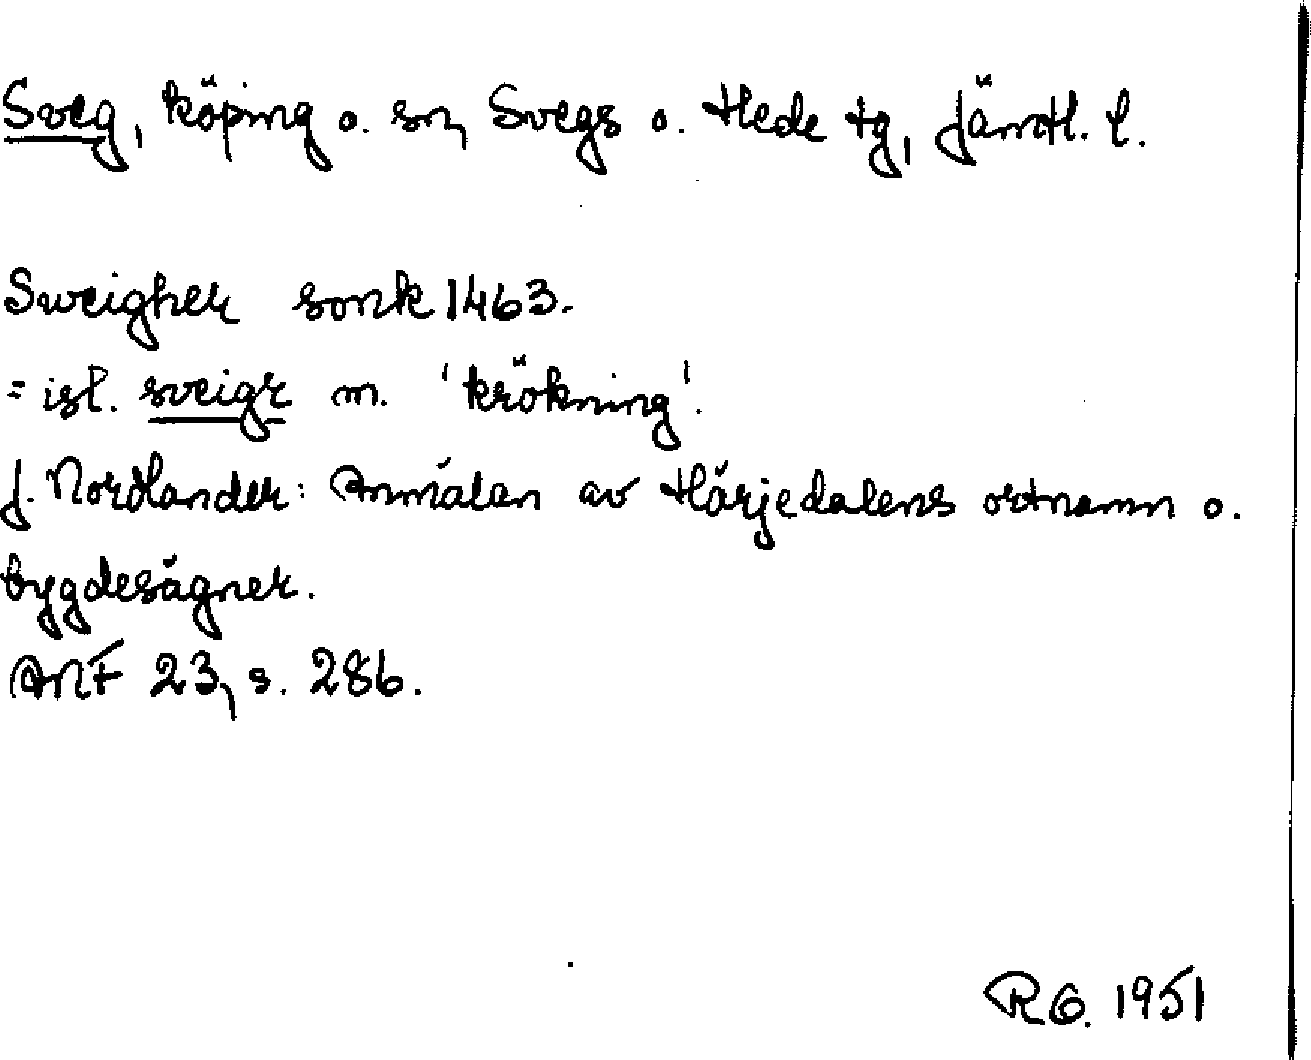 Sveg, köping o. sn, Svegs o. Hede tg, Jämtl. l.
Sweigher sonk 1463.
= isl. sveigr m. 'krökning'.
J. Nordlander: Anmälan av Härjedalens ortnamn o.
bygdesägner.
ANF 23, s. 286.
RG. 1951